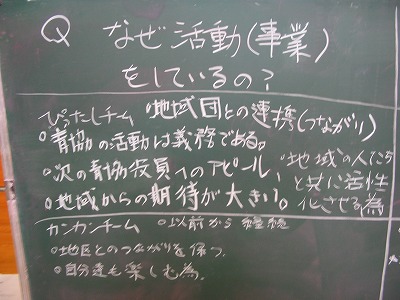 Q なぜ活動(事業)
をしているの?
ぴったしチーム 地域団との連携(つながり)
○青協の活動は義務である。
○次の青協役員へのアピール、
○地域からの期待が大きい。
地域の人たち
と共に活性
化させる為
カンカンチーム ○以前から継続
○地区とのつながりを保つ
○自分達も楽しむ為。